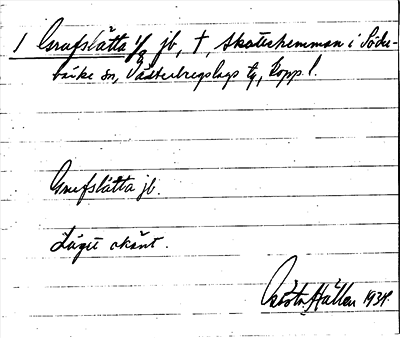 1 Grufslätta 1/8 jb, †, skattehemman i Söder-
bärke sn, Västerbergslags tg, Kopp. l.
Grufslätta jb.
Läget okänt.
Hallén 1931.